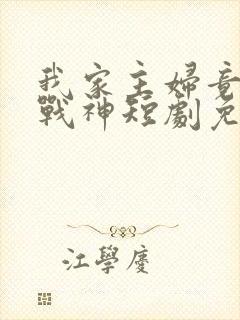 我家主婦竟
戰神短劇免
江學慶